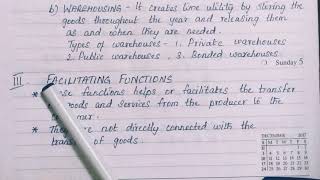 b) WAREHOUSING - It creates time utility by storing the
goods throughout the year and releasing them
as and when they are needed.
Types of warehouses - 1. Private warehouses
2. Public warehouses 3. Bonded warehouses.
Sunday 5
III FACILITATING FUNCTIONS
* functions helps or facilitates the transfer
goods and services from the producer to the
* not directly connected with the
of goods.
DECEMBER 2017